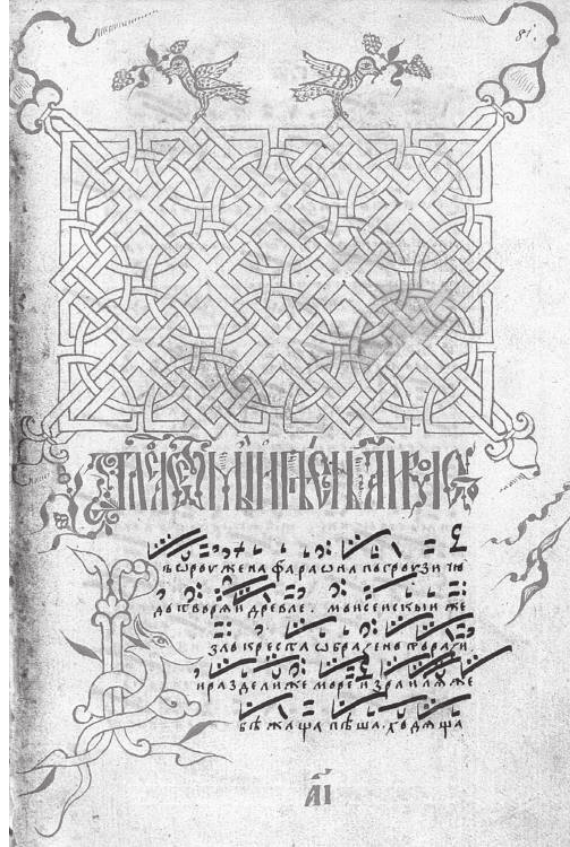 81.
въѡроужена фараѡна погроузи чю
дотворѧи древле. моисеискыи же
зло креста ѡбразено порази
и разделиже море израилѧ же
бѣжаща пѣша. ходѧща
а҃і